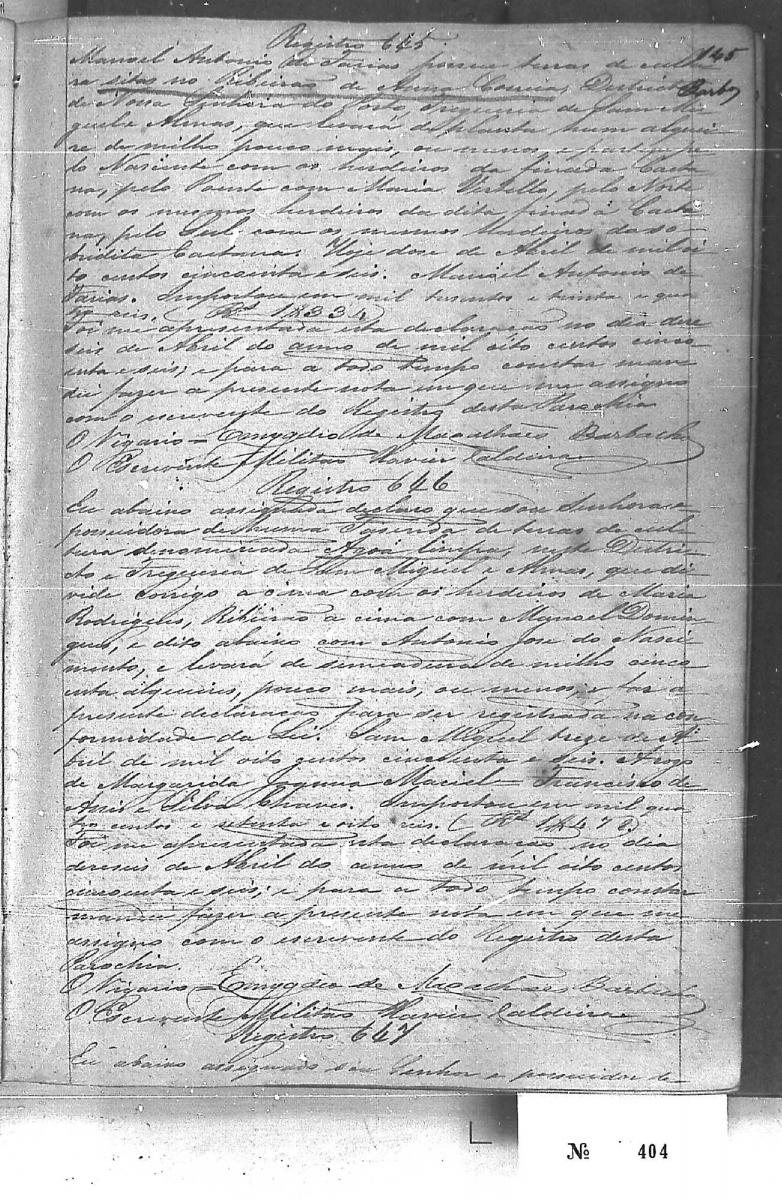 Registro 645
145
Manoel Antonio de Farias possue terras de cultu-
ra sitas no Ribeirão de Anna Correia, Districto
de Nossa Senhora do Porto, Freguesia de Sam Mi-
guel e Almas, que levará de planta hum alquei-
re de milho pouco mais, ou menos, e parte pe-
lo Nascente com os herdeiros da finada Caeta-
na, pelo Poente com Maria, pelo Norte
com os mesmos herdeiros da dita finada Caeta-
na, pelo Sul com os mesmos herdeiros da so-
bredita Caetana. Hoje dose de Abril de mil oi-
to centos cincoenta e seis. Manoel Antonio de
Farias. Importou em mil tresentos e trinta e qua-
tro reis. (Rs 1$334)
Foi me apresentada esta declaração no dia deze-
seis de Abril do anno de mil oito centos cinco-
enta e seis; e para a todo tempo constar man-
dei fazer a presente nota em que me assigno
com o escrevente do Registro desta Parochia
O Vigario = Emygdio de Magalhães Barbacho
O Escrevente Militão Xavier Caldeira
Registro 646
Eu abaixo assignada declaro que sou Senhora e
possuidora de huma Fasenda de terras de cul-
tura denominada Agoa limpa, neste Distri-
cto e Freguesia de Sam Miguel e Almas, que di-
vide corrigo a cima com os herdeiros de Maria
Rodrigues, Ribeirão a cima com Manoel Domin-
gues, e dito abaixo com Antonio Jose do Nasci-
mento, e levará de semeadura de milho cinco-
enta alqueires, pouco mais, ou menos, e faz a
presente declaração para ser registrada na con-
formidade da Lei. Sam Miguel treze de A-
bril de mil oito centos cincoenta e seis. Arogo
de Margarida Joanna Maciel = Francisco de
Assis e Silva Chaves. Importou em mil qua-
tro centos e setenta e oito reis. (Rs 1$478)
Foi me apresentada esta declaração no dia
dezeseis de Abril do anno de mil oito centos
cincoenta e seis; e para a todo tempo constar
mandei fazer a presente nota em que me
assigno com o escrevente do Registro desta
Parochia.
O Vigario = Emygdio de Magalhães Barbacho
O Escrevente Militão Xavier Caldeira
Registro 647
Eu abaixo assignado sou Senhor e possuidor de
Nº 404